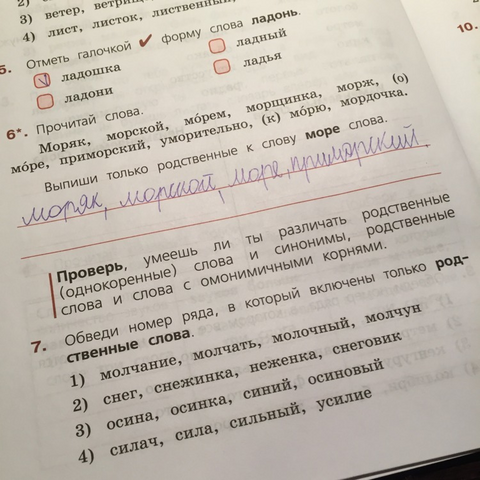 2)
3) ветер,
4) лист, листок, лиственный,
5. Отметь галочкой ✔ форму слова ладонь.
ладошка
ладный
ладони
ладья
10.
6*. Прочитай слова.
Моряк, морской, мо́рем, морщинка, морж, (о)
мо́ре, приморский, уморительно, (к) мо́рю, мордочка.
Выпиши только родственные к слову море слова.
моряк, морской, море, приморский.
Проверь, умеешь ли ты различать родственные
(однокоренные) слова и синонимы, родственные
слова и слова с омонимичными корнями.
7. Обведи номер ряда, в который включены только род-
ственные слова.
1) молчание, молчать, молочный, молчун
2) снег, снежинка, неженка, снеговик
3) осина, осинка, синий, осиновый
4) силач, сила, сильный, усилие